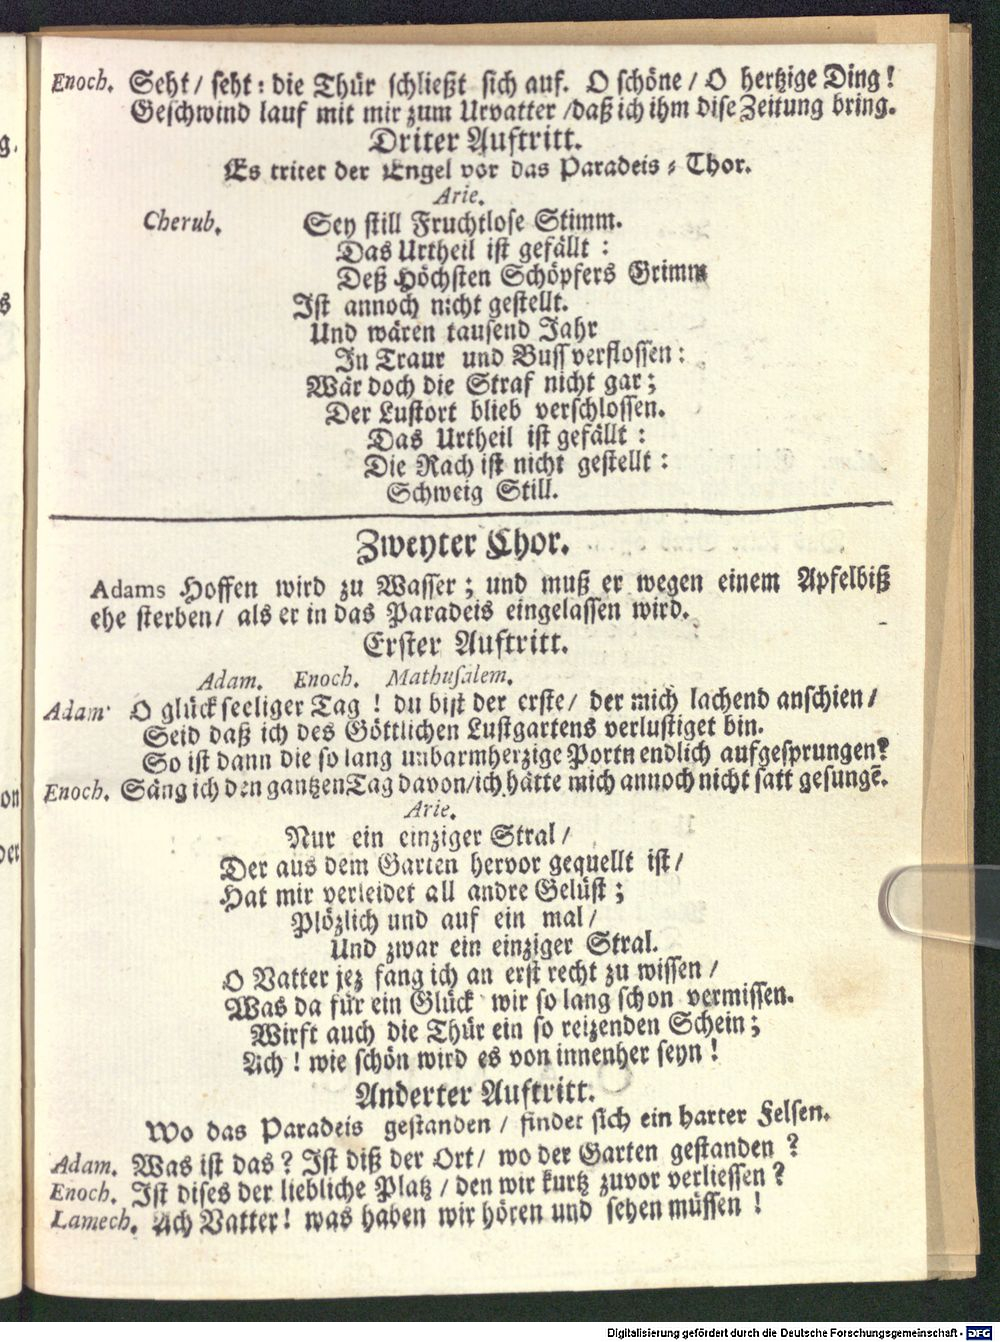 Enoch. Seht / seht : die Thür schließt sich auf. O schöne / O hertzige Ding !
Geschwind lauf mit mir zum Urvatter / daß ich ihm dise Zeitung bring.
Driter Auftritt.
Es tritet der Engel vor das Paradeis - Thor.
Arie.
Cherub. Sey still Fruchtlose Stimm.
Das Urtheil ist gefällt :
Deß Höchsten Schöpfers Grimm
Ist annoch nicht gestellt.
Und wären tausend Jahr
In Traur und Buss verflossen :
Wär doch die Straf nicht gar ;
Der Lustort blieb verschlossen.
Das Urtheil ist gefällt :
Die Rach ist nicht gestellt :
Schweig Still.
Zweyter Chor.
Adams Hoffen wird zu Wasser ; und muß er wegen einem Apfelbiß
ehe sterben / als er in das Paradeis eingelassen wird.
Erster Auftritt.
Adam. Enoch. Mathusalem.
Adam. O glückseeliger Tag ! du bist der erste / der mich lachend anschien /
Seid daß ich des Göttlichen Lustgartens verlustiget bin.
So ist dann die so lang unbarmherzige Portn endlich aufgesprungen?
Enoch. Säng ich den gantzen Tag davon / ich hätte mich annoch nicht satt gesungē.
Arie.
Nur ein einziger Stral /
Der aus dem Garten hervor gequellt ist /
Hat mir verleidet all andre Gelüst ;
Plözlich und auf ein mal /
Und zwar ein einziger Stral.
O Vatter jez fang ich an erst recht zu wissen /
Was da für ein Glück wir so lang schon vermissen.
Wirft auch die Thür ein so reizenden Schein ;
Ach ! wie schön wird es von innenher seyn !
Anderter Auftritt.
Wo das Paradeis gestanden / findet sich ein harter Felsen.
Adam. Was ist das ? Ist diß der Ort / wo der Garten gestanden ?
Enoch. Ist dises der liebliche Platz / den wir kurtz zuvor verliessen ?
Lamech. Ach Vatter ! was haben wir hören und sehen müssen !
Digitalisierung gefördert durch die Deutsche Forschungsgemeinschaft - DFG